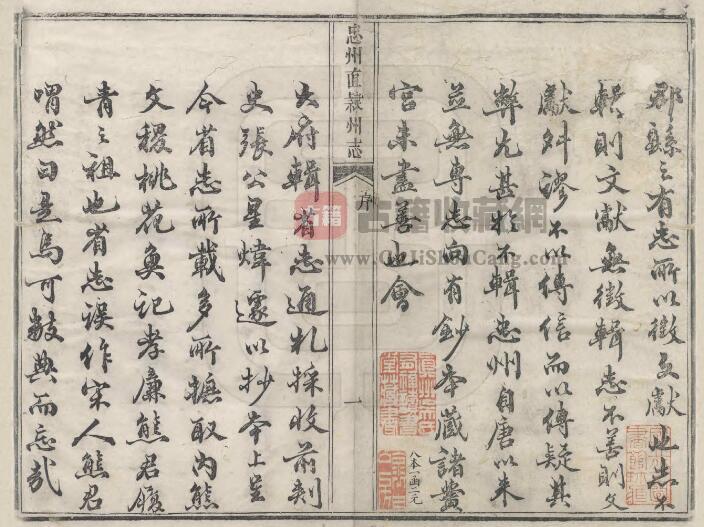 郡縣之有志所以徵文獻也志不
輯則文獻無徵輯志不善則文
獻糾謬不以傳信而以傳疑其
弊尤甚於不輯忠州自唐以来
並無專志向有鈔本藏諸黌
宫未盡善也會
忠州直隸州志
序
一
八本一函二元
大府輯省志通札採收前刺
史張公星煒遽以抄本上呈
今省志所載多所摭取内熊
文稷桃花魚記孝廉熊君履
青之祖也省志誤作宋人熊君
喟然曰是焉可數典而忘哉
古籍
古籍收藏網
www.GuJiShuCang.com